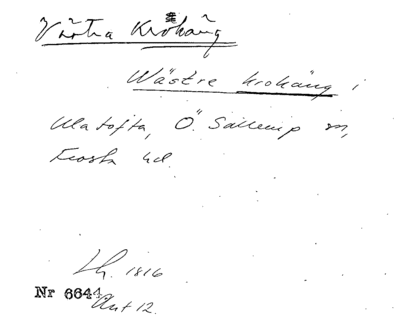 Västra Krokäng
Wästre Krokäng i
Ulatofta, Ö. Sallerup sn,
Frosta hd.
Lh. 1816
Nr 6644
Akt 12.